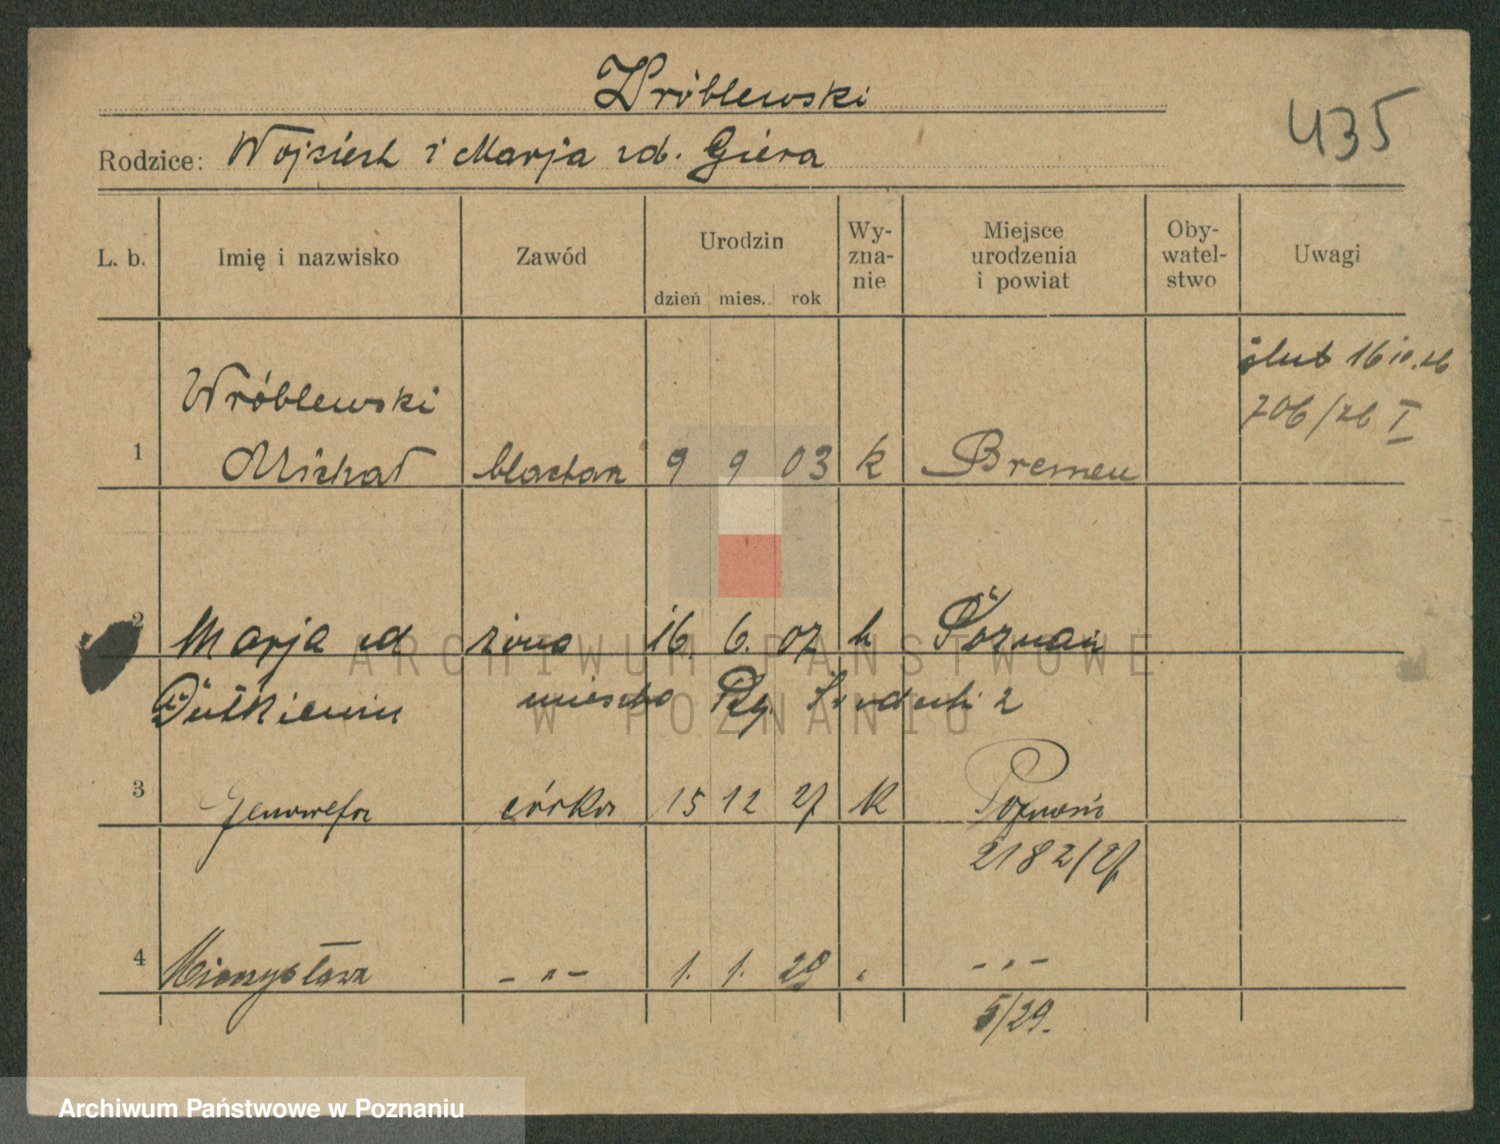 Wróblewski
435
Rodzice: Wojciech i Marja zd. Giera
L. b. Imię i nazwisko Zawód Urodzin Wy- zna- nie Miejsce urodzenia i powiat Oby- watel- stwo Uwagi
dzień mies. rok
ślub 16 10. 26
706/26 I
Wróblewski
1 Michał blacharz 9 9 03 k Bremen
2 Marja zd żona 16. 6. 07 k Poznań
Dutkiewicz
3 Genowefa córka 15 12 27 k Poznań
2182/27
4 Mieczysława - " - 1. 1. 29 - " -
5/29.
ARCHIWUM PAŃSTWOWE
W POZNANIU
Archiwum Państwowe w Poznaniu